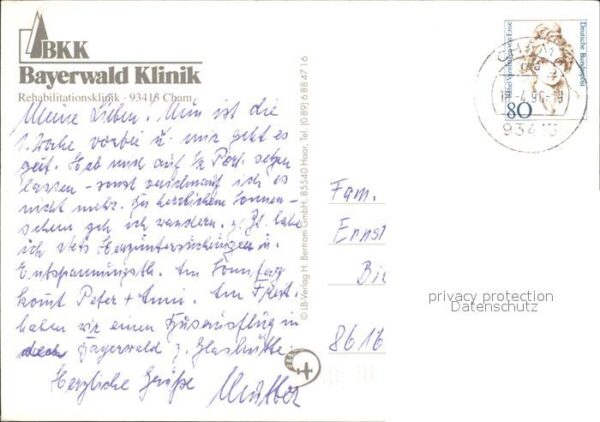 BKK
Bayerwald Klinik
Rehabilitationsklinik · 93413 Cham
Meine Lieben. Nun ist die
1. Woche vorbei u. mir geht es
gut. Hab mich auf 1/2 Port. setzen
lassen - sonst verschnauf ich es
nicht mehr. Bei herrlichem Sonnen-
schein geh ich wandern. z. Zt. habe
ich stets Herzuntersuchungen u.
Entspannungsth. Am Sonntag
komt Peter + Anni. Am Freit.
haben wir einen Hausausflug in
den Bayerwald z. Glashütte.
Herzliche Grüße
Mutter
© LB-Verlag H. Bertram GmbH, 85540 Haar, Tel. (0 89) 6 88 47 16
Deutsche Bundespost
80
CHAM
93413
Fam.
Ernst
Bi
8616
privacy protection
Datenschutz